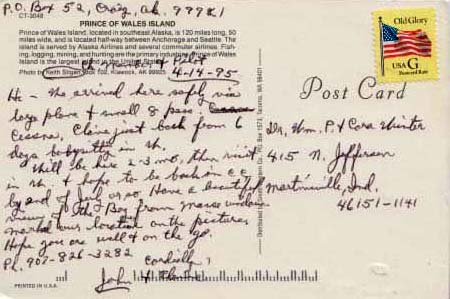 P.O. Box 52, Craig, Ak. 99921
CT-3048
PRINCE OF WALES ISLAND
Prince of Wales Island, located in southeast Alaska, is 120 miles long, 50
miles wide, and is located half-way between Anchorage and Seattle. The
island is served by Alaska Airlines and several commuter airlines. Fish-
ing, logging, mining, and hunting are the primary industries. Prince of Wales
Island is the largest island in the United States.
Photo by Keith Box 102, Klawock, AK 99925
& Pilot
4-14-95
Hi - We arrived here safely via
large plane & small 8 pass.
Cessna, Claire just back from 6
days babysitting in
Will be here 2-3 mo, then visit
in & hope to be back on
by end of July or so. Have a beautiful
view of the Bay from
marked our location on the picture.
Hope you are well & on the go.
Ph. 907-826-3282 Cordially,
John &
PRINTED IN U.S.A.
Post Card
Old Glory
USA G
Postcard Rate
Dr. Wm. P. & Cora Winter
415 N. Jefferson
Martinsville, Ind.
46151-1141